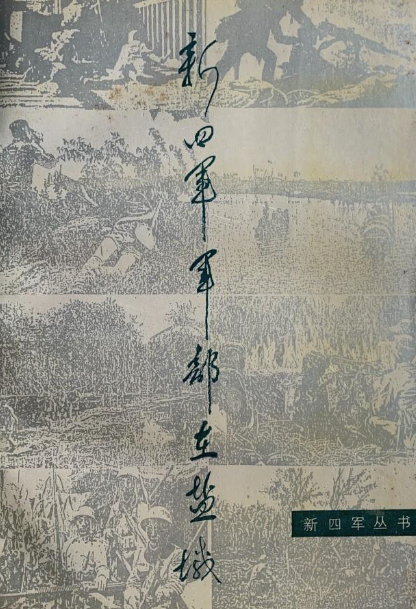 新四軍軍部在盐城
新四军丛书